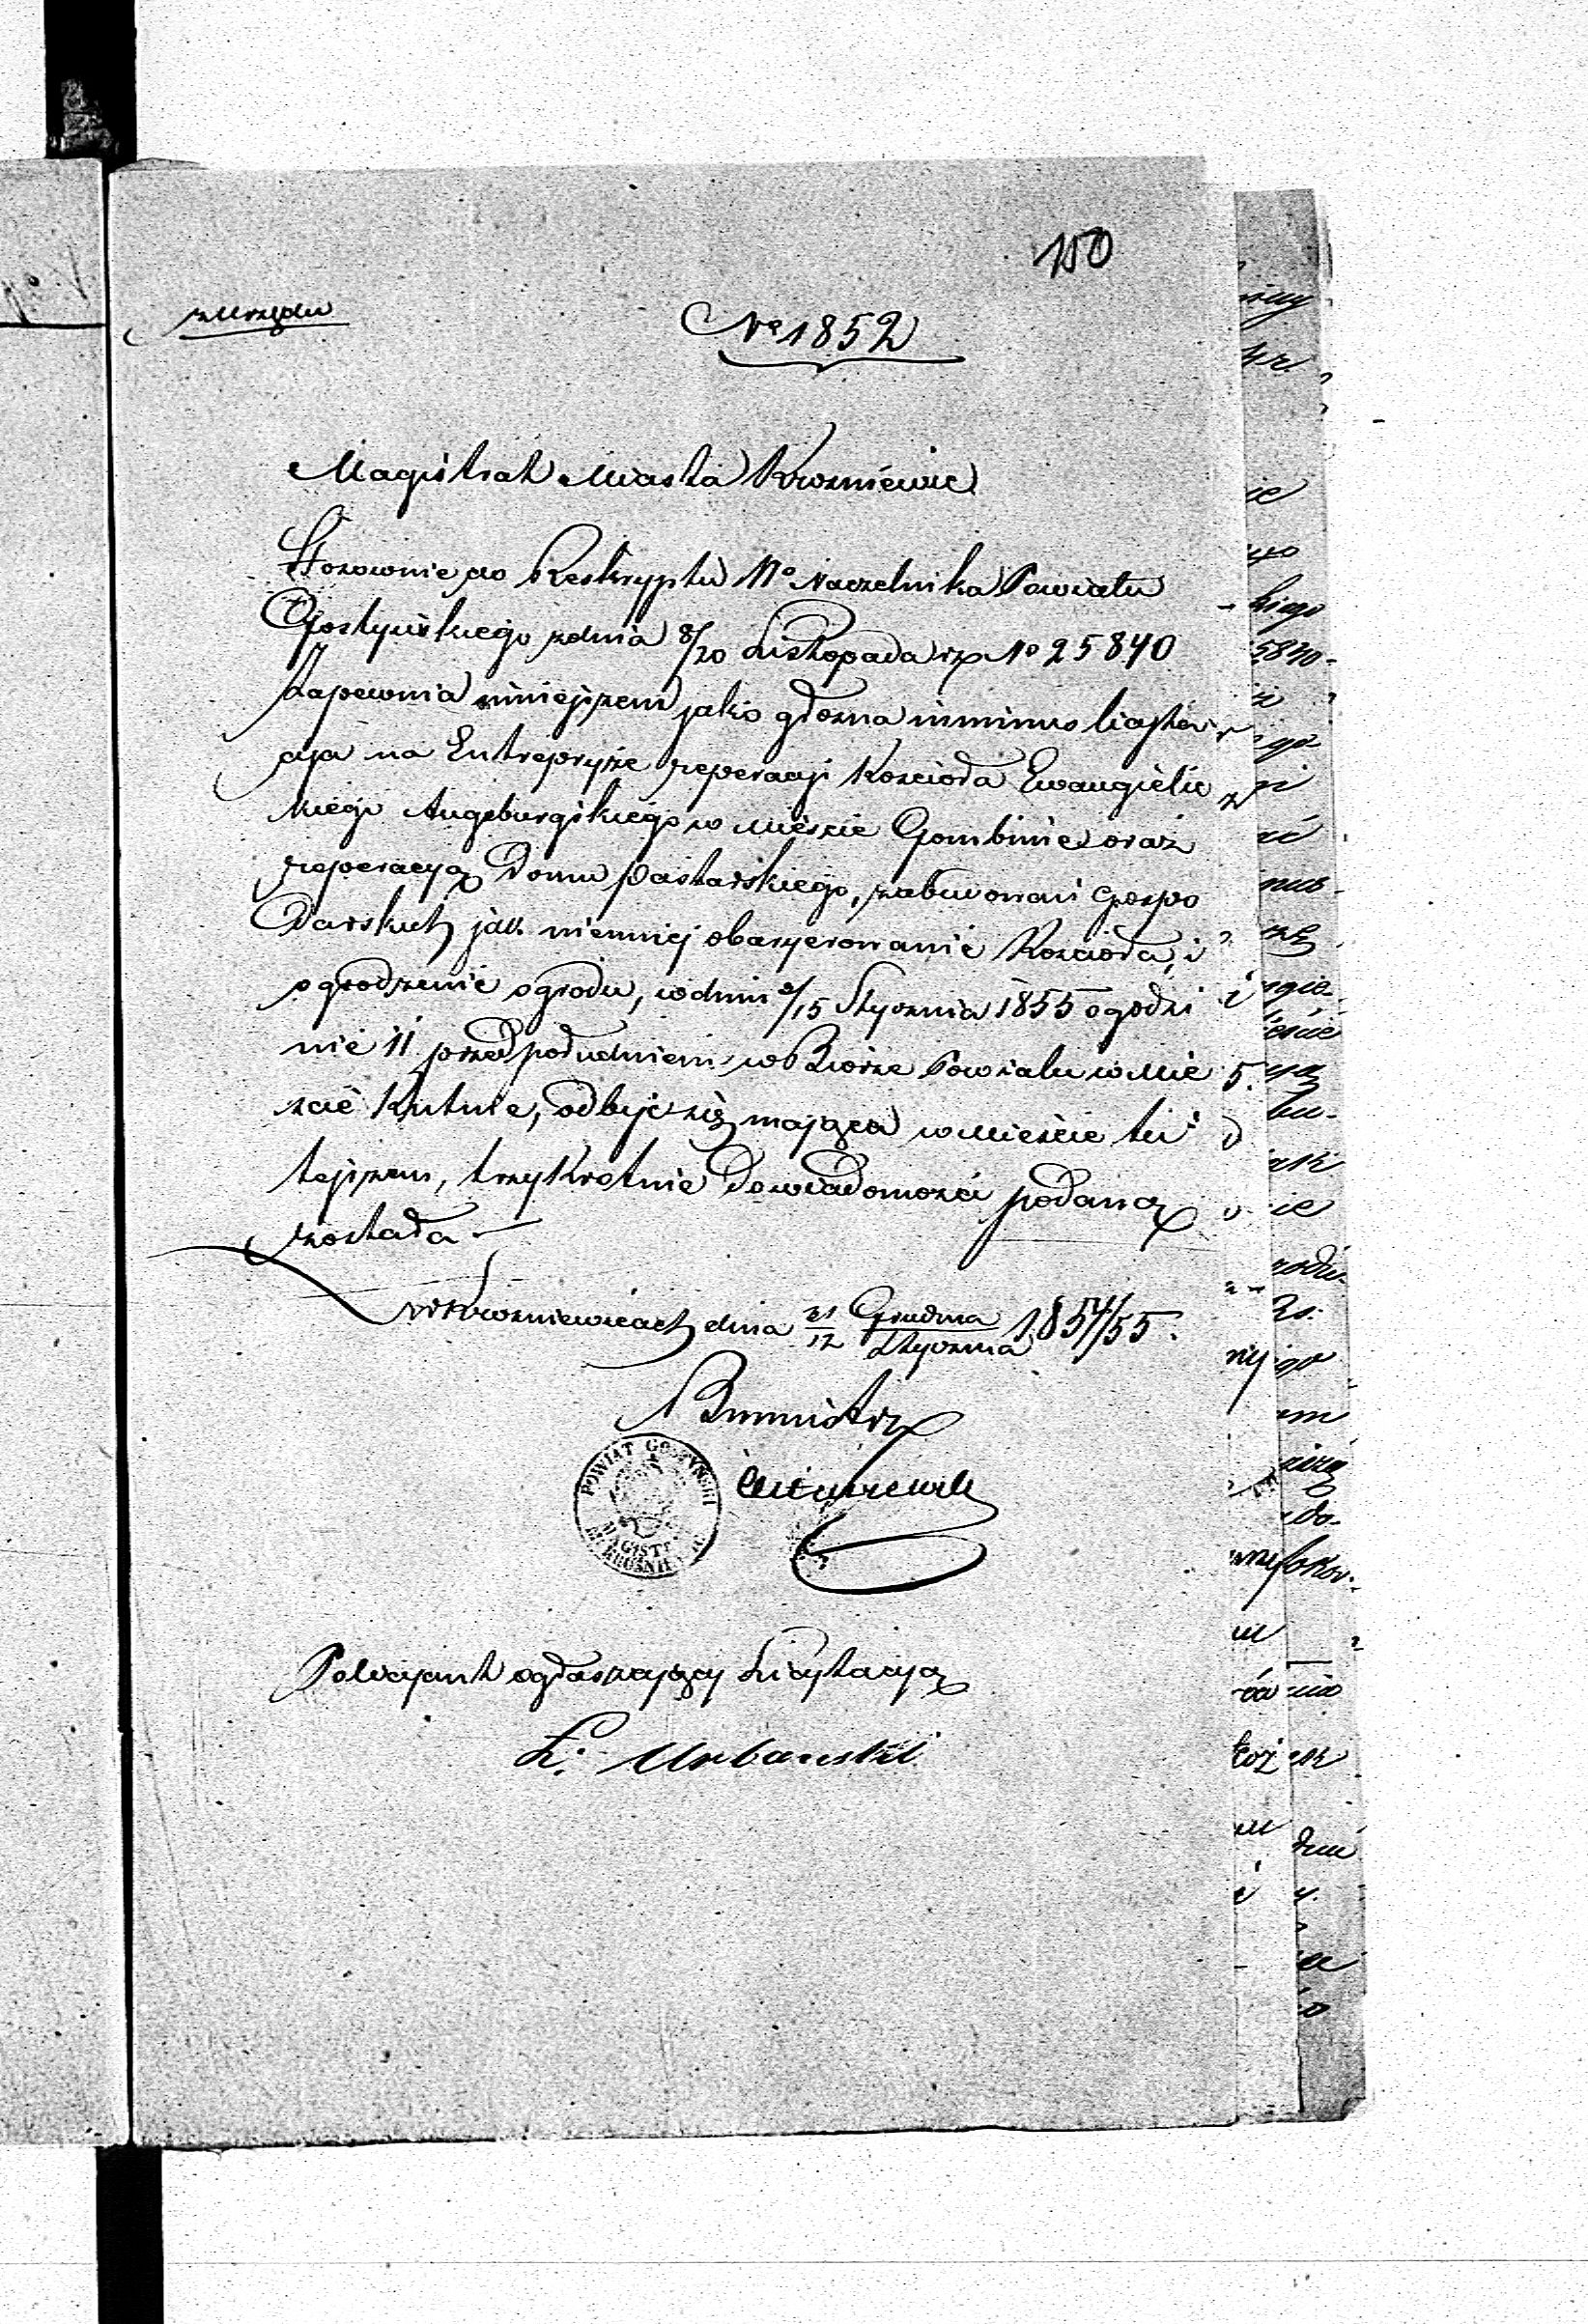 150
z Urzędu
No 1852
Magistrat Miasta Krosniewic
Stosownie do Reskryptu Wo Naczelnika Powiatu
Gostyńskiego z dnia 8/20 Listopada rz No 25840
Zapewnia niniejszem jako głosna in minus licyta
cya na Entrepryze reperacji Koscioła Ewangielic
kiego Augsburgskiego w Miescie Gombinie oraz
reperacyą Domu Pastorskiego, zabudowań Gospo
darskich jak niemniej obaryerowanie Koscioła, i
ogrodzenie ogrodu, w dniu 3/15 Stycznia 1855 o godzi
nie 11 przed południem w Biórze Powiatu w Mie
scie Kutnie, odbyć się mająca w Miescie tu
tejszem, trzykrotnie do wiadomosci podaną
została
w Krosniewicach dnia 31/12 Grudnia/Stycznia 1854/55.
Burmistrz
POWIAT GOSTYŃSKI
MAGISTR
Policyant ogłaszający Licytacyą
Ł. Urbanski